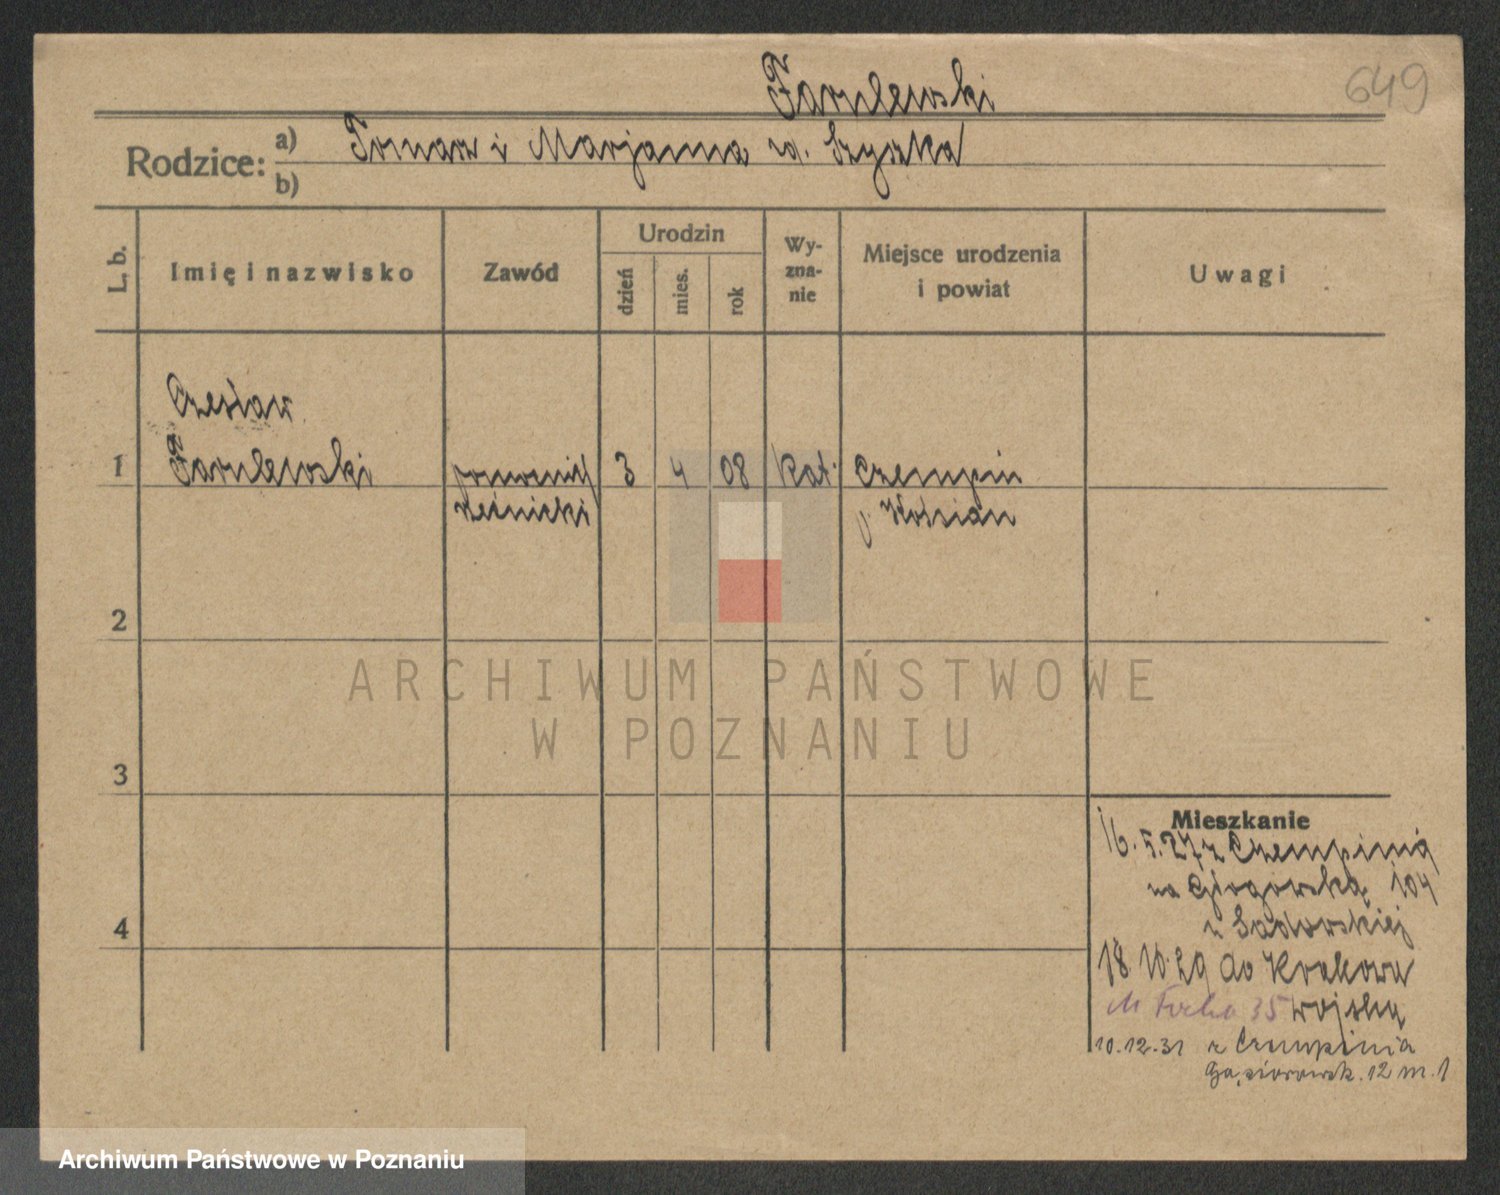 649
Farulewski
Rodzice: a) Tomasz i Marjanna zd. Szyszka
b)
L. b.
Imię i nazwisko
Zawód
Urodzin
dzień
mies.
rok
Wy-
zna-
nie
Miejsce urodzenia
i powiat
Uwagi
Czesław
1 Farulewski pomocnik 3 4 08 kat. Czempin
rzeźnicki p. Kościan
2
3
4
Mieszkanie
16.5.27 z Czempinia
na Głogowską 104
u Sadowskiej
18 10.29 do Krakowa
M Focha 35 wojska
10.12.31 z Czempinia
Gąsiorowsk. 12 m. 1
ARCHIWUM PAŃSTWOWE
W POZNANIU
Archiwum Państwowe w Poznaniu